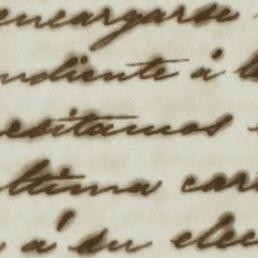 encargarse
ndiente á l
esitamos
ltima car
á su elec